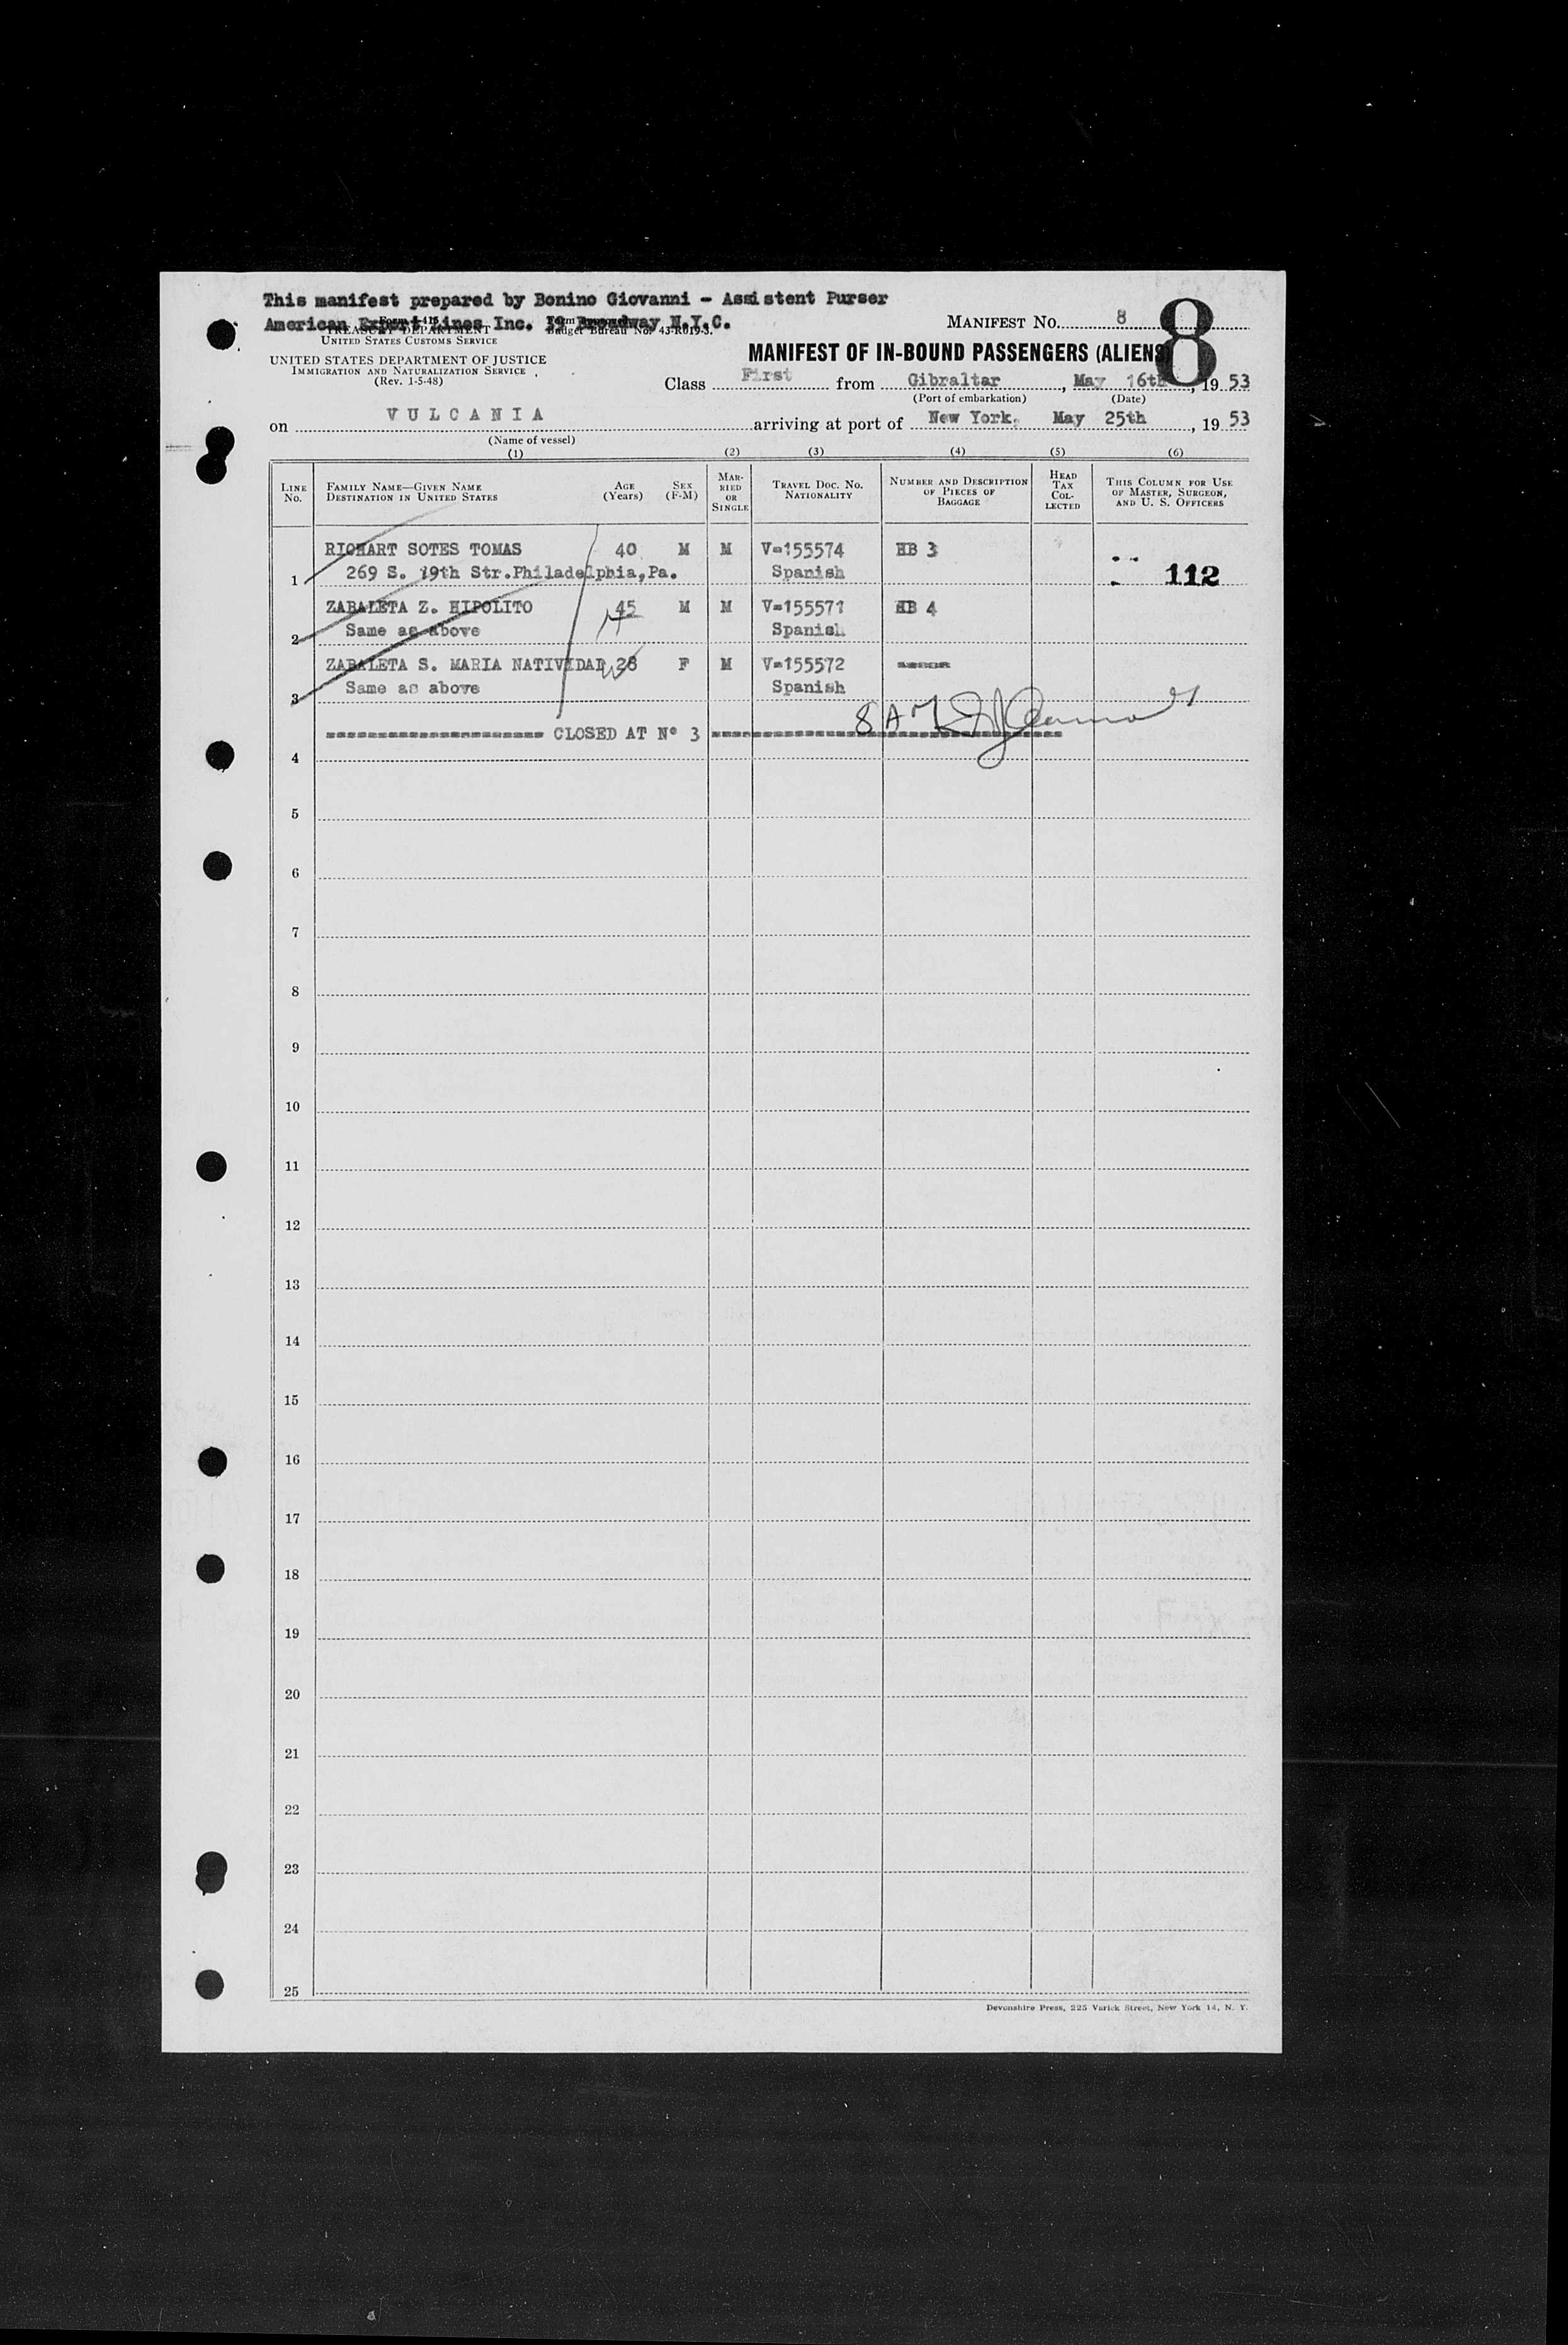 This manifest prepared by Bonino Giovanni - Assistent Purser
American Export Lines Inc. 39 Broadway N.Y.C.
Form I-415
TREASURY DEPARTMENT
UNITED STATES CUSTOMS SERVICE
Budget Bureau No. 43-R019-3.
MANIFEST No. 8
8
UNITED STATES DEPARTMENT OF JUSTICE
IMMIGRATION AND NATURALIZATION SERVICE
(Rev. 1-5-48)
MANIFEST OF IN-BOUND PASSENGERS (ALIENS
Class First from Gibraltar, May 16th, 19 53
(Port of embarkation) (Date)
on VULCANIA arriving at port of New York, May 25th, 19 53
(Name of vessel)
(1) (2) (3) (4) (5) (6)
LINE No.
FAMILY NAME—GIVEN NAME
DESTINATION IN UNITED STATES
AGE (Years)
SEX (F-M)
MARRIED OR SINGLE
TRAVEL DOC. NO.
NATIONALITY
NUMBER AND DESCRIPTION OF PIECES OF BAGGAGE
HEAD TAX COLLECTED
THIS COLUMN FOR USE OF MASTER, SURGEON, AND U. S. OFFICERS
RICHART SOTES TOMAS 40 M M V-155574 HB 3
1 269 S. 19th Str.Philadelphia,Pa. Spanish 112
ZABALETA Z. HIPOLITO 45 M M V-155571 HB 4
2 Same as above Spanish
ZABALETA S. MARIA NATIVIDAD 28 F M V-155572 -----
3 Same as above Spanish
8 A
CLOSED AT Nº 3
4
5
6
7
8
9
10
11
12
13
14
15
16
17
18
19
20
21
22
23
24
25
Devonshire Press, 225 Varick Street, New York 14, N. Y.